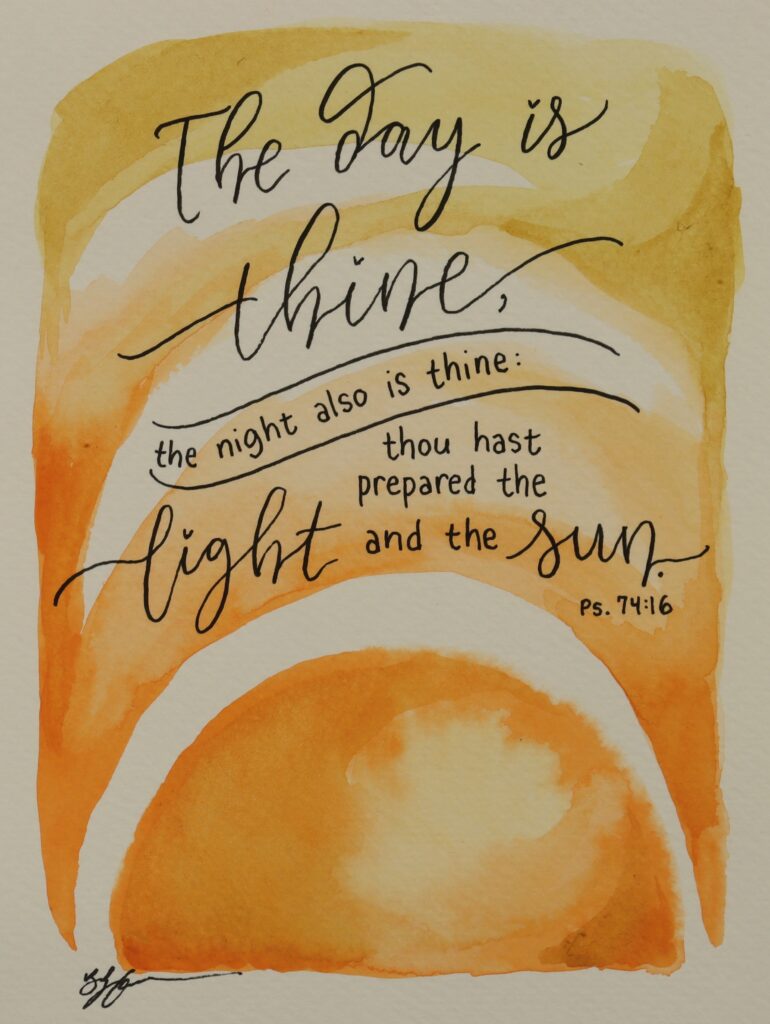 The day is
thine,
the night also is thine:
thou hast
prepared the
light and the sun.
Ps. 74:16